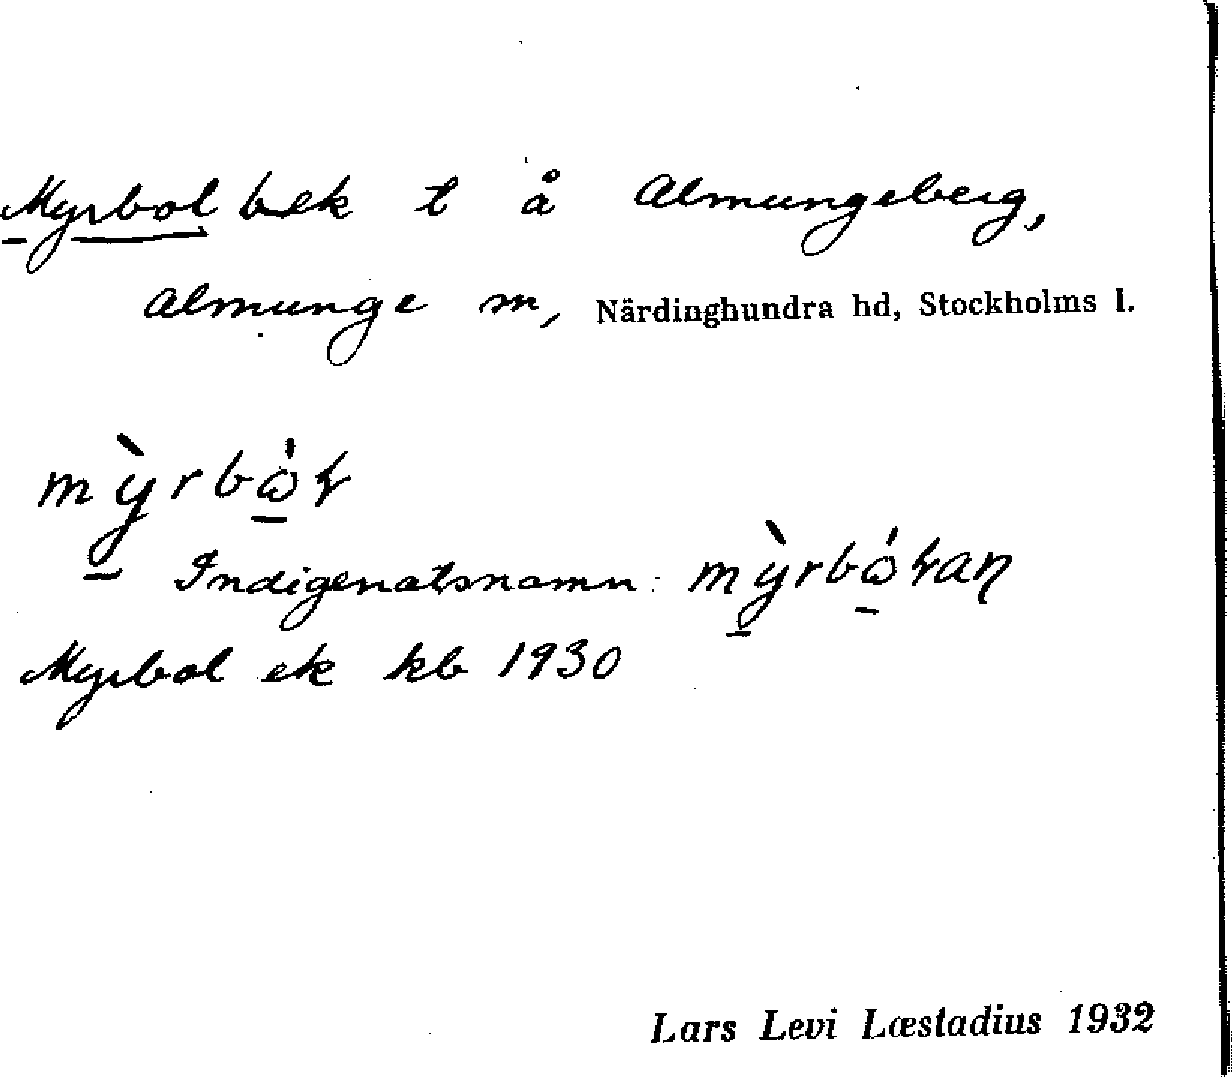 Myrbol bek t å Almungeberg,
Almunge m, Närdinghundra hd, Stockholms l.
mỳrbω̇ɫ
Indigenatsnamn: mỳrbω̇ɫaη
Myrbol ek kb 1930
Lars Levi Læstadius 1932